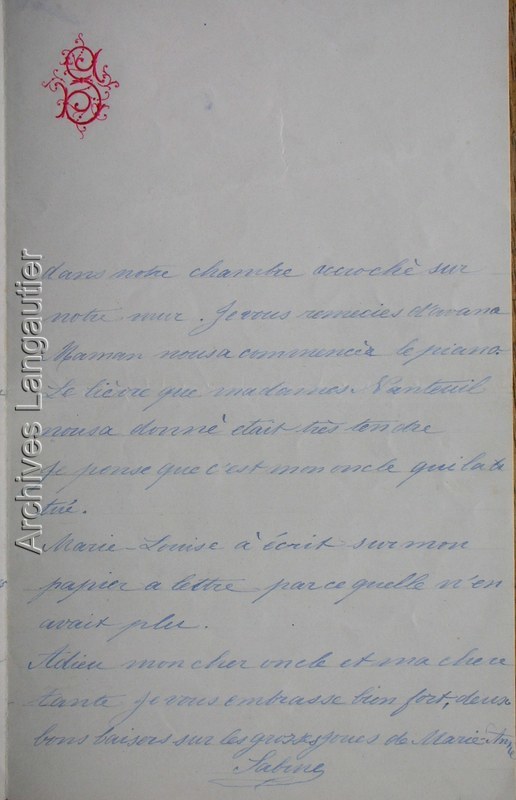 dans notre chambre accroché sur
notre mur. Je vous remercies d'avana
Maman nousa commencéa le piano.
Le lièvre que madames Nanteuil
nousa donné était très tendre
Je pense que c'est mon oncle qui la
tué.
Marie-Louise à écrit sur mon
papier a lettre parce quelle n'en
avait plu.
Adieu mon cher oncle et ma chere
tante je vous embrasse bien fort, deux
bons baisers sur les grosses joues de Marie-Anne
Sabine
Archives Langautier